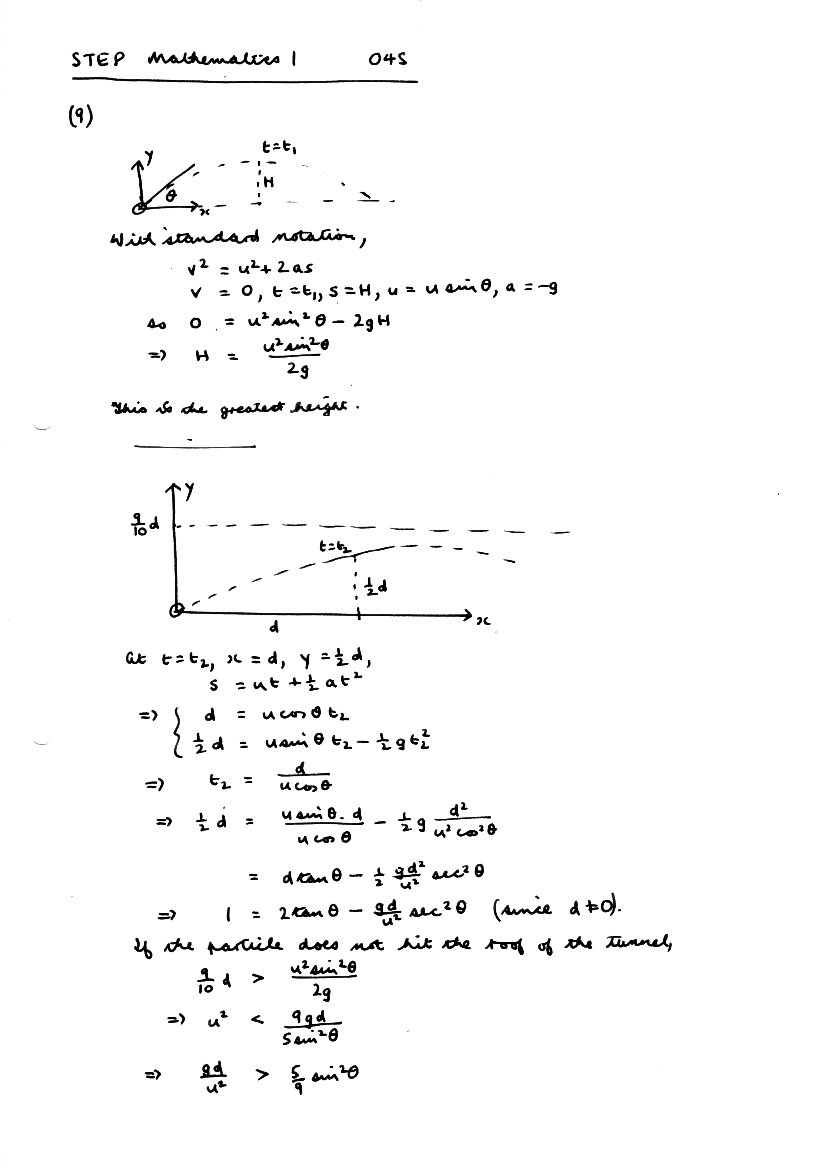 STEP Mathematics 1 04S
(9)
t=t₁
y
H
θ
x
With standard notation,
v² = u² + 2as
v = 0, t = t₁, s = H, u = u sin θ, a = -g
so 0 = u² sin² θ - 2gH
=> H = u² sin² θ / 2g
This is the greatest height.
y
9/10 d
t=t₂
½d
x
d
At t=t₂, x = d, y = ½d,
s = ut + ½ at²
=> { d = u cos θ t₂
½ d = u sin θ t₂ - ½ g t₂²
=> t₂ = d / u cos θ
=> ½ d = u sin θ . d / u cos θ - ½ g d² / u² cos² θ
= d tan θ - ½ gd²/u² sec² θ
=> 1 = 2 tan θ - gd/u² sec² θ (since d ≠ 0).
If the particle does not hit the roof of the tunnel,
9/10 d > u² sin² θ / 2g
=> u² < 9gd / 5 sin² θ
=> gd/u² > 5/9 sin² θ